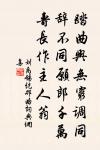 踏曲興無窮調同
辭不同願郎千萬
壽長作主人翁
劉禹錫紇那曲